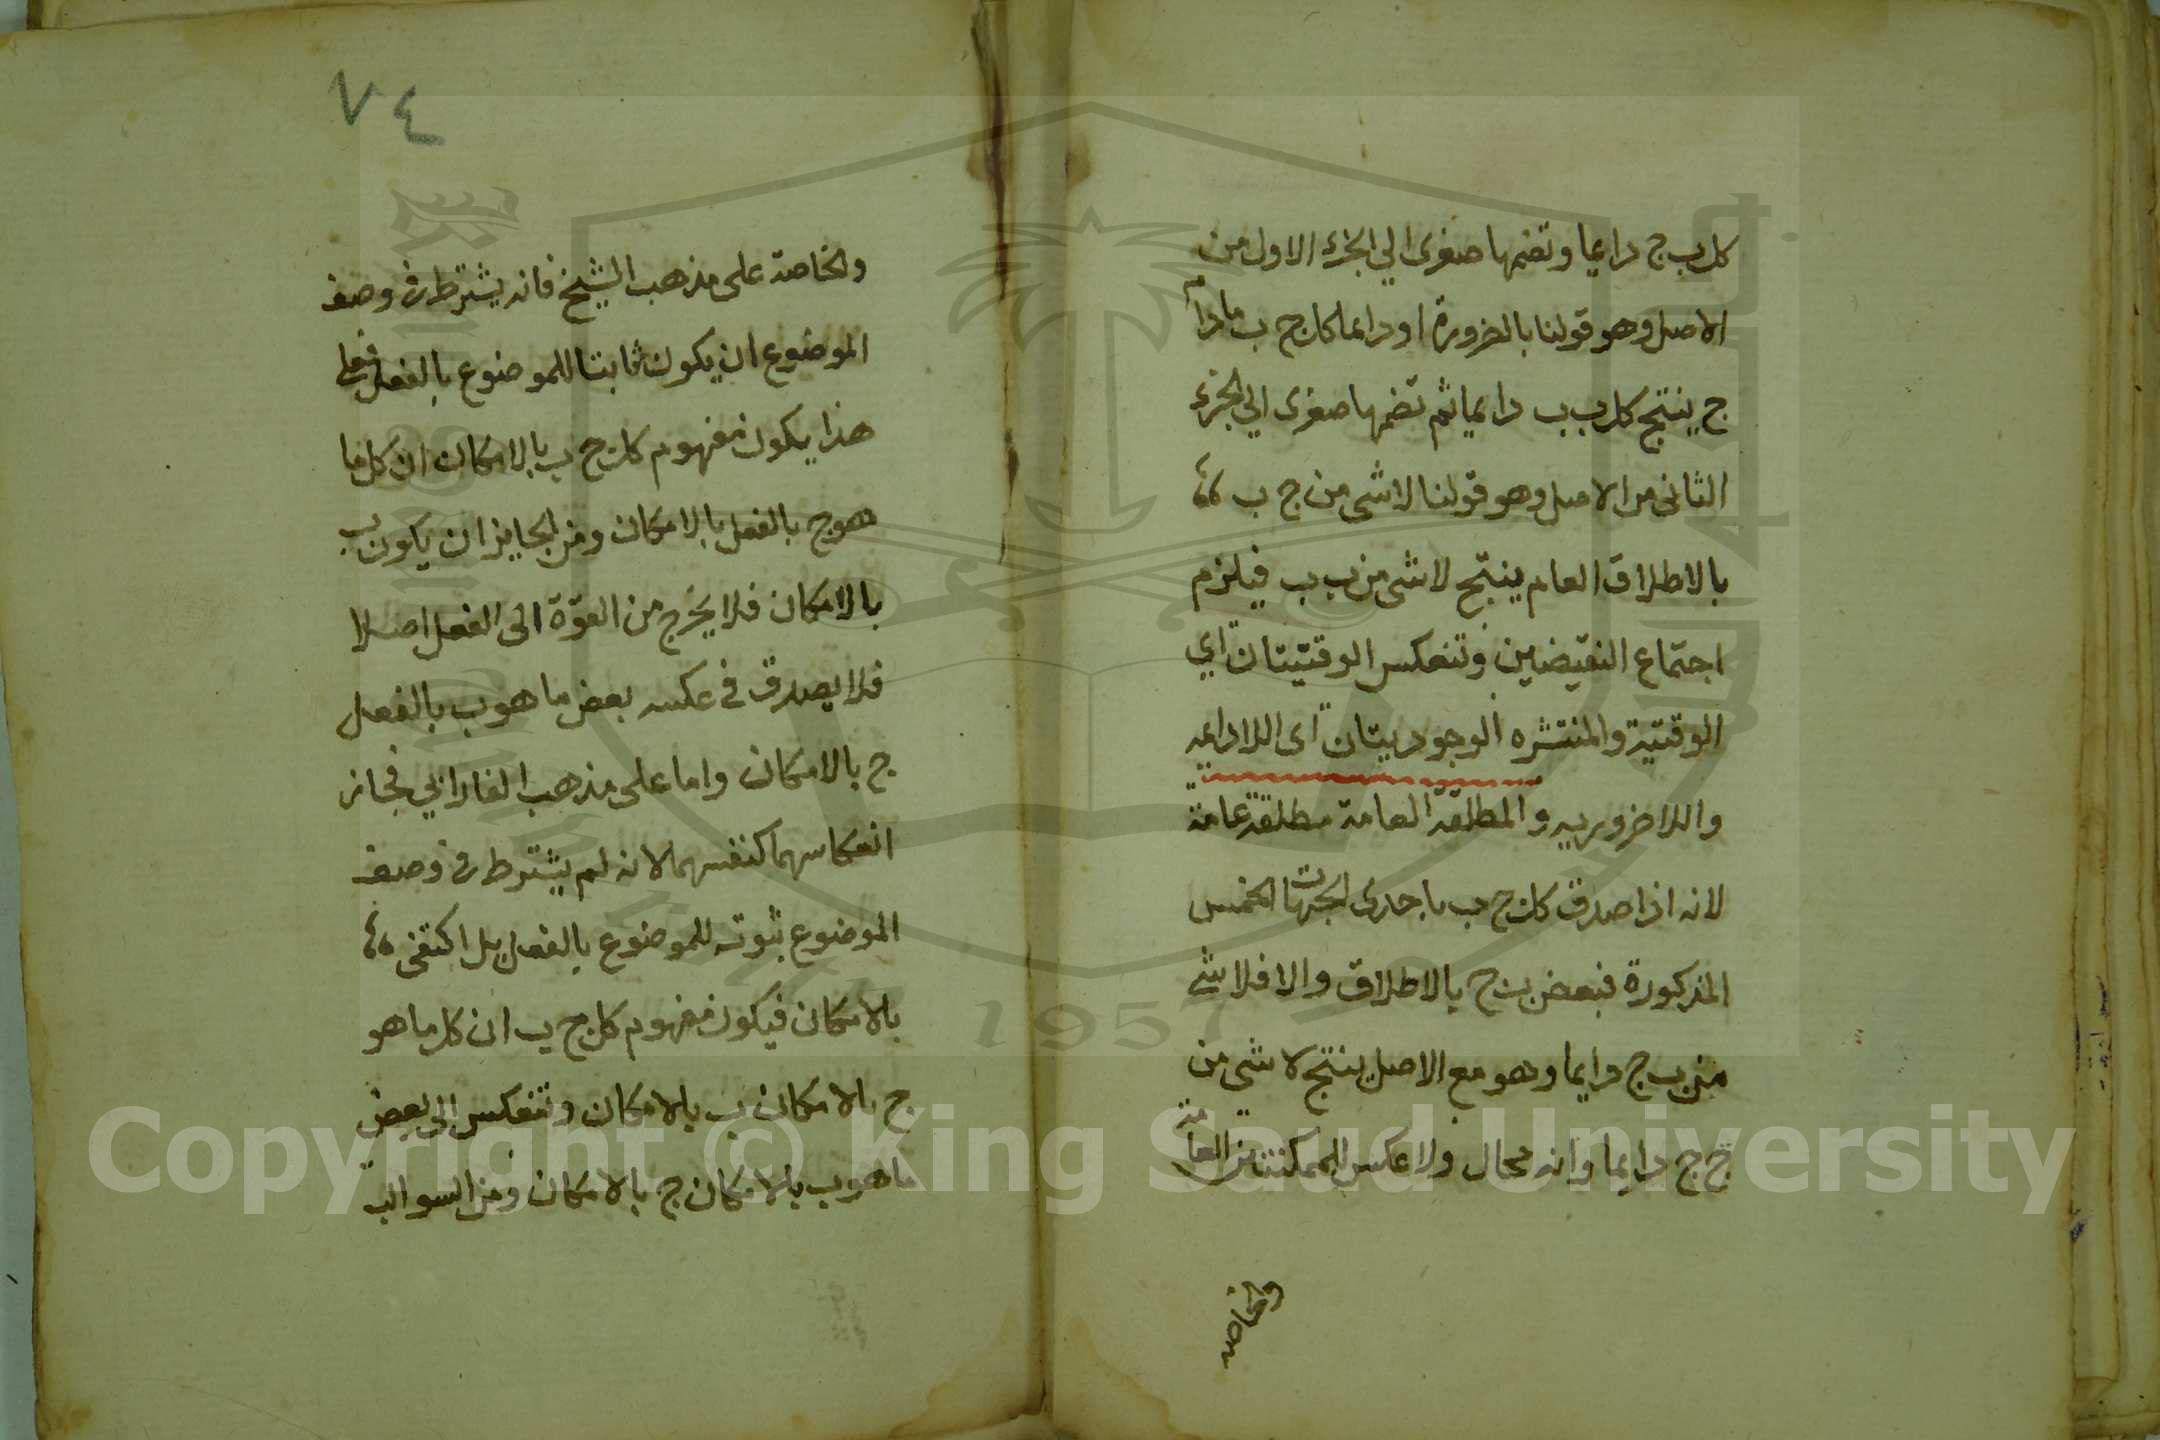 كل ب ج دايما وتضمها صغرى الي الجزء الاول من
الاصل وهو قولنا بالضرورة او دايما كل ج ب مادام
ج ينتج كل ب ب دايما ثم تضمها صغرى الي الجزء
الثانى من الاصل وهو قولنا لاشى من ج ب
بالاطلاق العام ينتج لاشى من ب ب فيلزم
اجتماع النقيضين وتنعكس الوقتيتان اي
الوقتية والمنتشره والوجوديتان اى اللادايمه
واللاضروريه والمطلقة العامة مطلقة عامة
لانه اذا صدق كل ج ب باحدى الجهات الخمس
المذكورة فبعض ب ج بالاطلاق والا فلاشى
من ب ج دايما وهو مع الاصل ينتج لاشى من
ج ج دايما وانه محال ولاعكس للممكنتين العامة
والخاصه
٧٤
والخاصة على مذهب الشيخ فانه يشترط فى وصف
الموضوع ان يكون ثابتا للموضوع بالفعل فعلى
هذا يكون مفهوم كل ج ب بالامكان ان كل ما
هو ج بالفعل ب بالامكان ومن الجايز ان يكون ب
بالامكان فلا يخرج من القوة الى الفعل اصلا
فلا يصدق في عكسه بعض ما هو ب بالفعل
ج بالامكان واما على مذهب الفارابي فجاز
انعكاسهما كنفسهما لانه لم يشترط فى وصف
الموضوع ثبوته للموضوع بالفعل بل اكتفى
بالامكان فيكون مفهوم كل ج ب ان كل ما هو
ج بالامكان ب بالامكان وتنعكس الى بعض
ما هو ب بالامكان ج بالامكان ومن السوالب
1957
Copyright © King Saud University